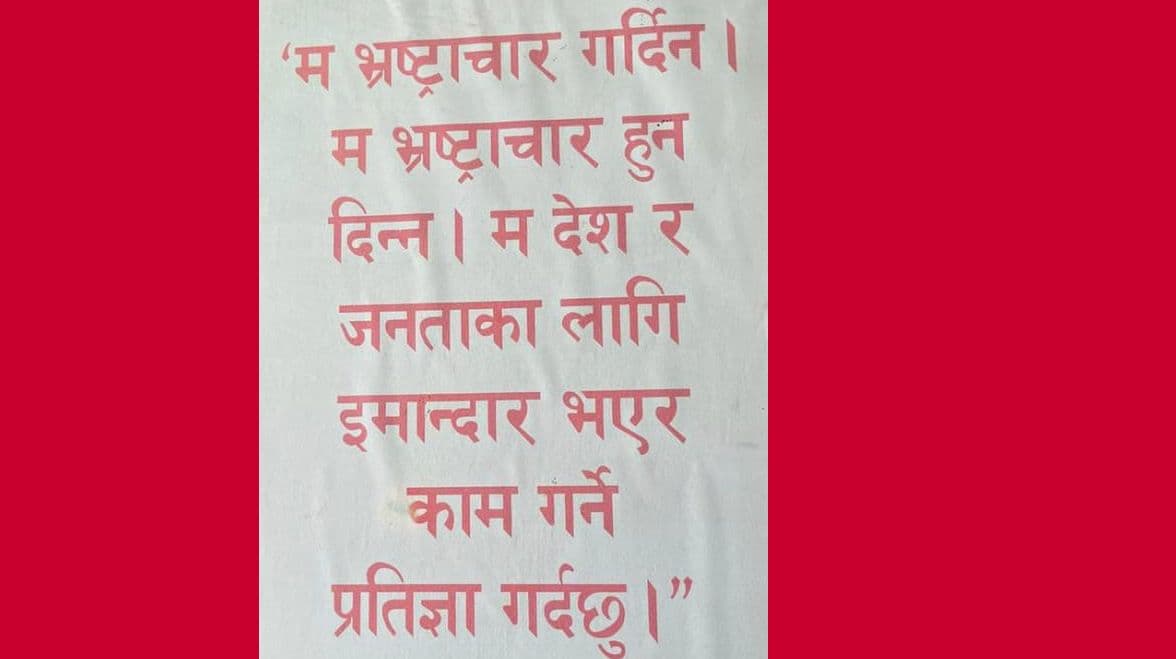 ‘म भ्रष्ट्राचार गर्दिन।
म भ्रष्ट्राचार हुन
दिन्न। म देश र
जनताका लागि
इमान्दार भएर
काम गर्ने
प्रतिज्ञा गर्दछु।”